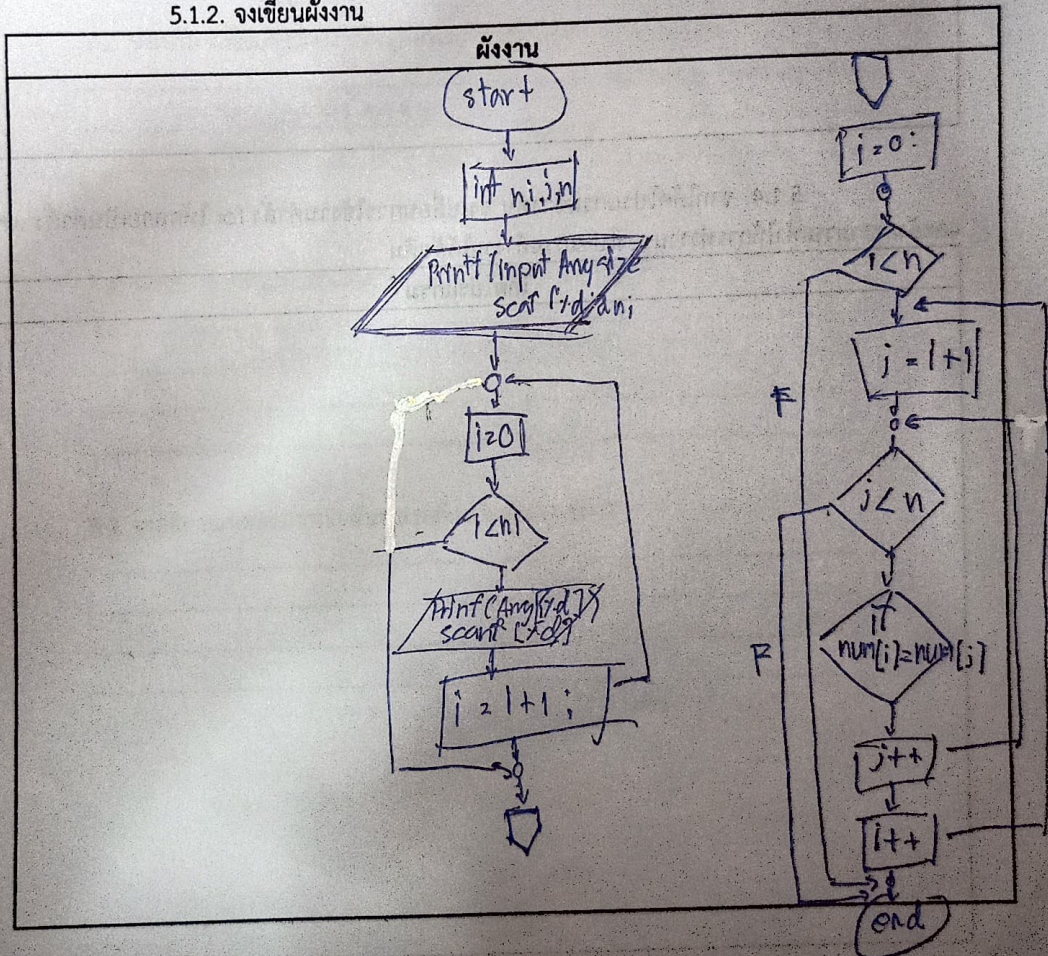 5.1.2. จงเขียนผังงาน
ผังงาน
start
int n,i,j,n
Printf (input Any size
scaf ("%d",&n;
i=0
i<n
Printf (Any[%d])
scanf [%d]
i = 1+1 ;
i=0;
i<n
F
j = 1+1
j<n
F
if
num[i]=num[j]
j++
i++
end